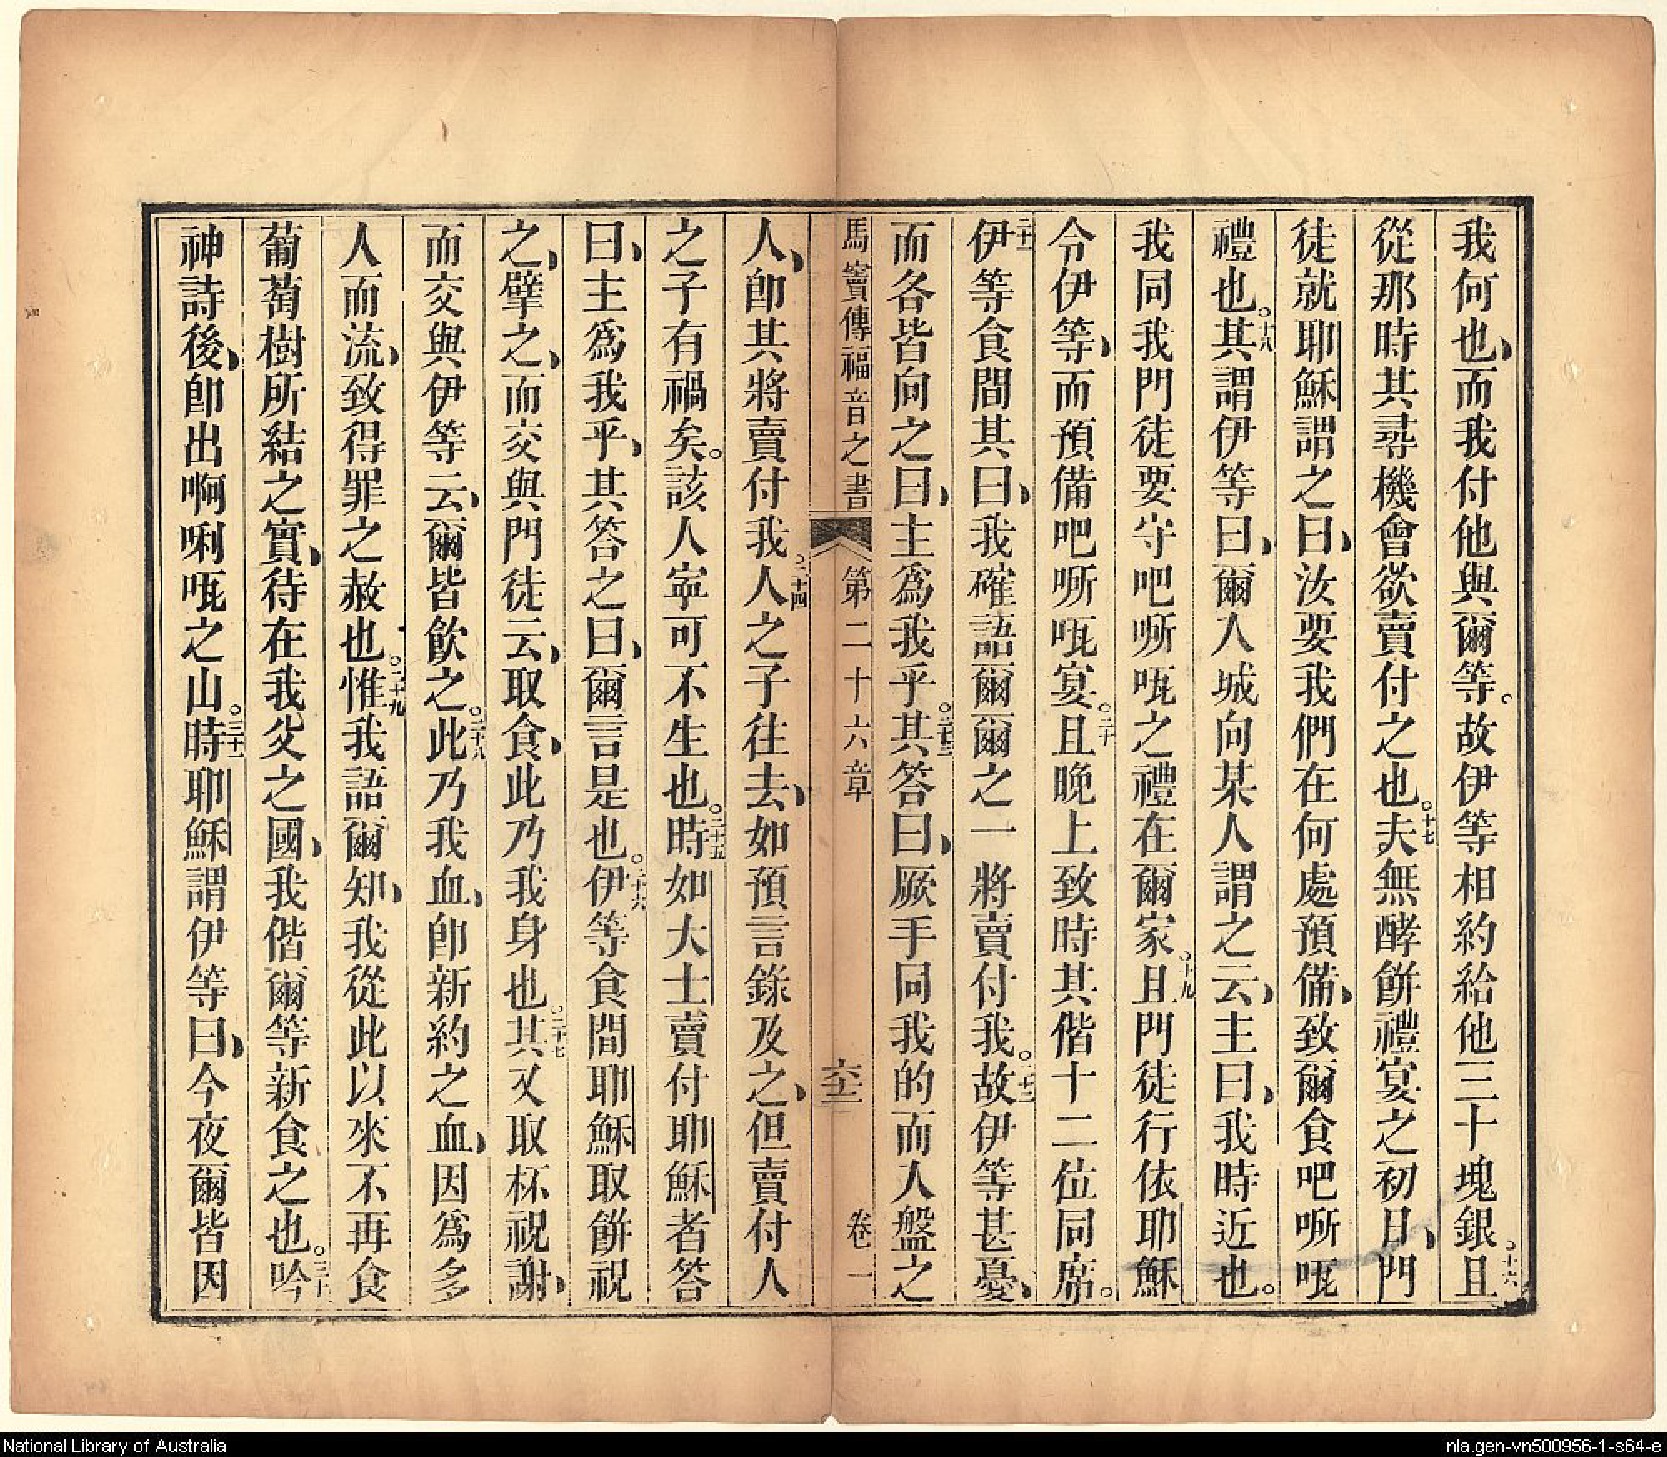 我何也、而我付他與爾等。故伊等相約給他三十塊銀。十六且
從那時其尋機會欲賣付之也。十七夫無酵餅禮宴之初日、門
徒就耶穌謂之曰、汝要我們在何處預備、致爾食吧嘶𠵽
禮也。十八其謂伊等曰、爾入城向某人謂之云、主曰、我時近也。
我同我門徒要守吧嘶𠵽之禮在爾家。十九且門徒行依耶穌
令伊等、而預備吧嘶𠵽宴。二十且晚上致時其偕十二位同席。
二十一伊等食間其曰、我確語爾爾之一將賣付我。二十二故伊等甚憂、
而各皆向之曰、主為我乎。二十三其答曰、厥手同我的而入盤之
馬竇傳福音之書 第二十六章 卷一
人、即其將賣付我。二十四人之子往去、如預言錄及之、但賣付人
之子有禍矣。該人寧可不生也。二十五時如大士賣付耶穌者答
曰、主為我乎、其答之曰、爾言是也。二十六伊等食間耶穌取餅祝
之、擘之、而交與門徒云、取食、此乃我身也。二十七其又取杯祝謝、
而交與伊等云、爾皆飲之。二十八此乃我血、即新約之血、因為多
人而流、致得罪之赦也。二十九惟我語爾知、我從此以來不再食
葡萄樹所結之實、待在我父之國、我偕爾等新食之也。三十吟
神詩後、即出啊唎𠵽之山。三十一時耶穌謂伊等曰、今夜爾皆因
National Library of Australia
nla.gen-vn500956-1-s64-e